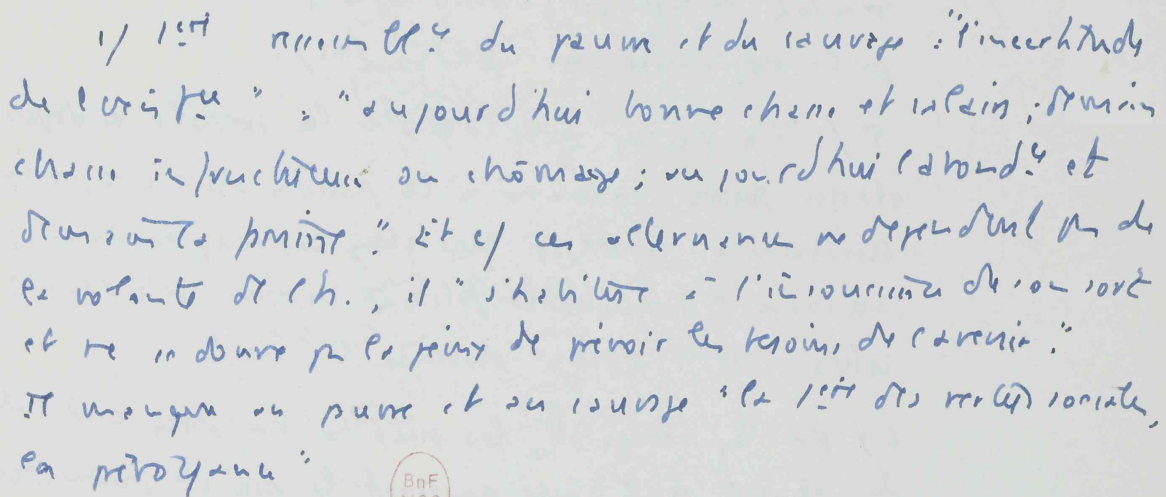 1/ 1ère ressembl.ce du pauvre et du sauvage : "l'incertitude
de l'exist.ce" : "aujourd'hui bonne chasse et salaire ; demain
chasse infructueuse ou chômage ; aujourd'hui l'abond.ce et
demain la misère". Et c/ ces alternances ne dépendent pas de
la volonté de l'h., il "s'habitue à l'insouciance de son sort
et ne se donne pas la peine de prévoir les besoins de l'avenir".
Il manque au pauvre et au sauvage "la 1ère des vertus sociales,
la prévoyance"
BnF